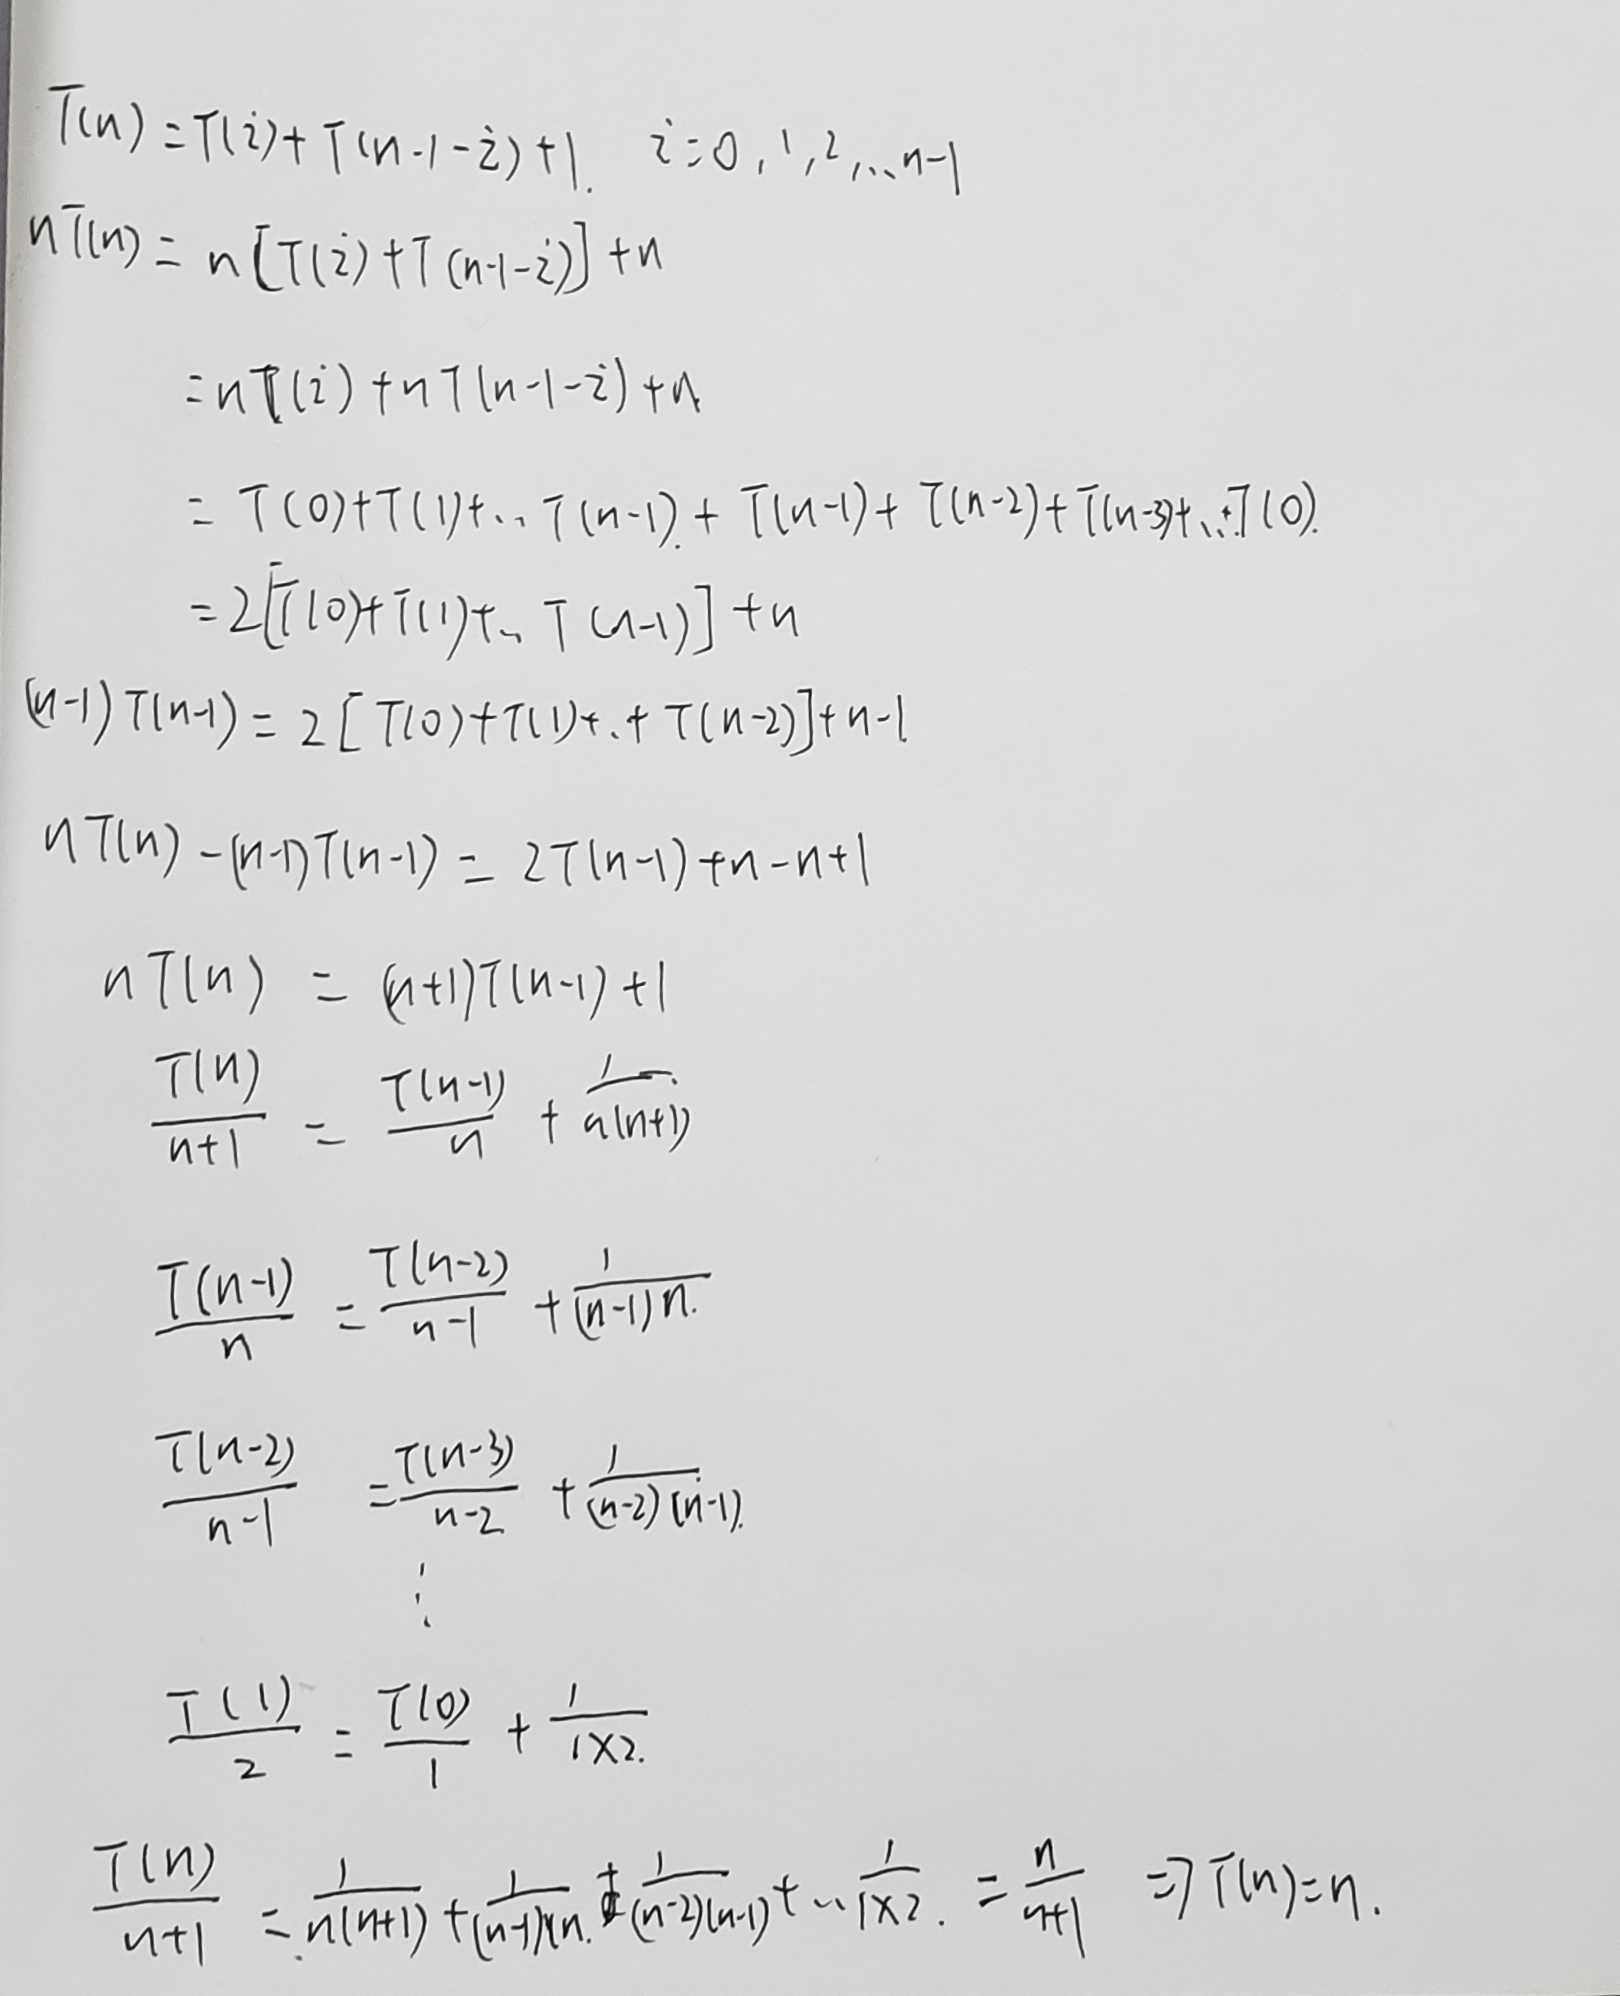 T(n) = T(i) + T(n-1-i) + 1. i = 0, 1, 2, ... n-1
nT(n) = n[T(i) + T(n-1-i)] + n
= nT(i) + nT(n-1-i) + n
= T(0) + T(1) + ... T(n-1) + T(n-1) + T(n-2) + T(n-3) + ... + T(0).
= 2[T(0) + T(1) + ... T(n-1)] + n
(n-1)T(n-1) = 2[T(0) + T(1) + .. + T(n-2)] + n-1
nT(n) - (n-1)T(n-1) = 2T(n-1) + n - n + 1
nT(n) = (n+1)T(n-1) + 1
T(n)/(n+1) = T(n-1)/n + 1/(n(n+1))
T(n-1)/n = T(n-2)/(n-1) + 1/((n-1)n).
T(n-2)/(n-1) = T(n-3)/(n-2) + 1/((n-2)(n-1)).
⋮
T(1)/2 = T(0)/1 + 1/(1×2).
T(n)/(n+1) = 1/(n(n+1)) + 1/((n-1)×n) + 1/((n-2)(n-1)) + ... 1/(1×2). = n/(n+1) ⇒ T(n) = n.